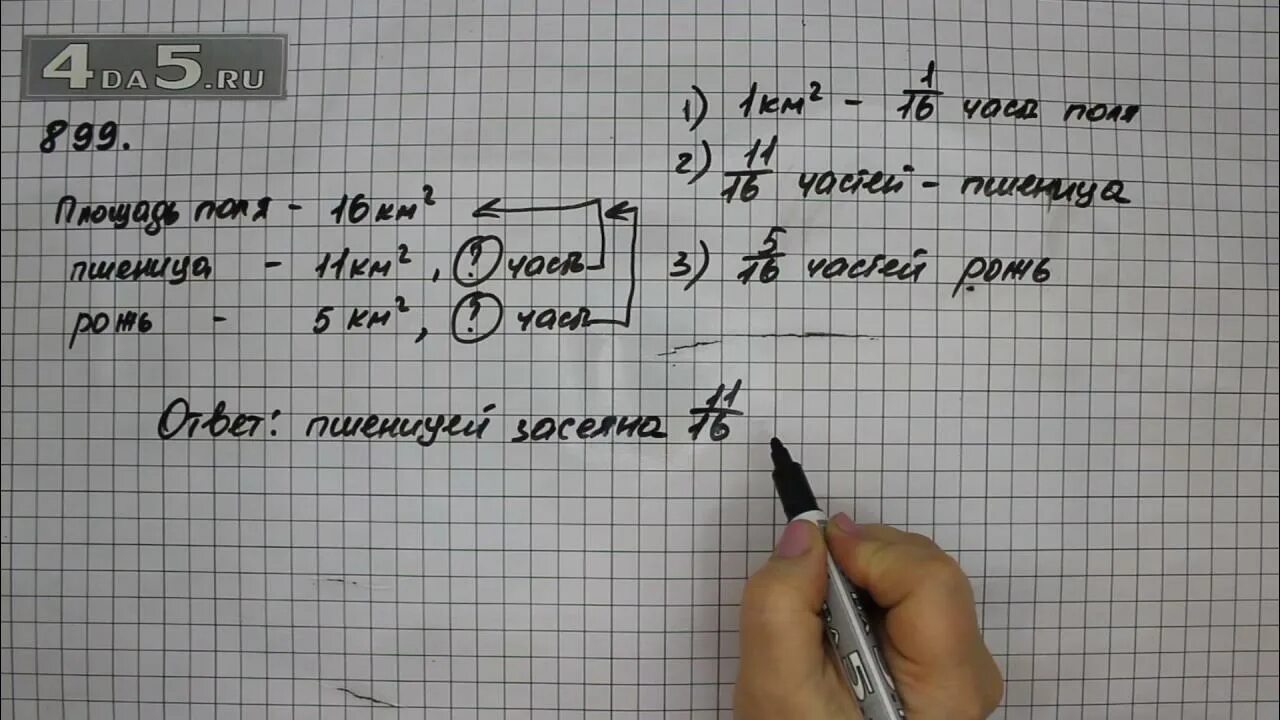 4DA5.RU
899.
Площадь поля - 16 км²
пшеница - 11 км², ? часть
рожь - 5 км², ? часть
1) 1 км² - 1/16 часть поля
2) 11/16 частей - пшеница
3) 5/16 частей рожь
Ответ: пшеницей засеяна 11/16
5